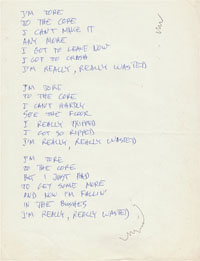 I'M SORE
TO THE CORE
I CAN'T MAKE IT
ANY MORE
I GOT TO LEAVE NOW
I GOT TO CRASH
I'M REALLY, REALLY WASTED
I'M SORE
TO THE CORE
I CAN'T HARDLY
SEE THE FLOOR
I REALLY TRIPPED
I GOT SO RIPPED
I'M REALLY, REALLY WASTED
I'M SORE
TO THE CORE
BUT I JUST HAD
TO GET SOME MORE
AND NOW I'M FALLIN'
IN THE BUSHES
I'M REALLY, REALLY WASTED